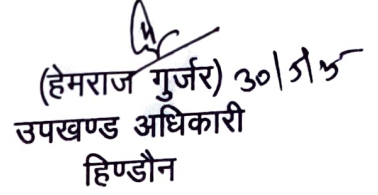 (हेमराज गुर्जर) 30/5/25
उपखण्ड अधिकारी
हिण्डौन